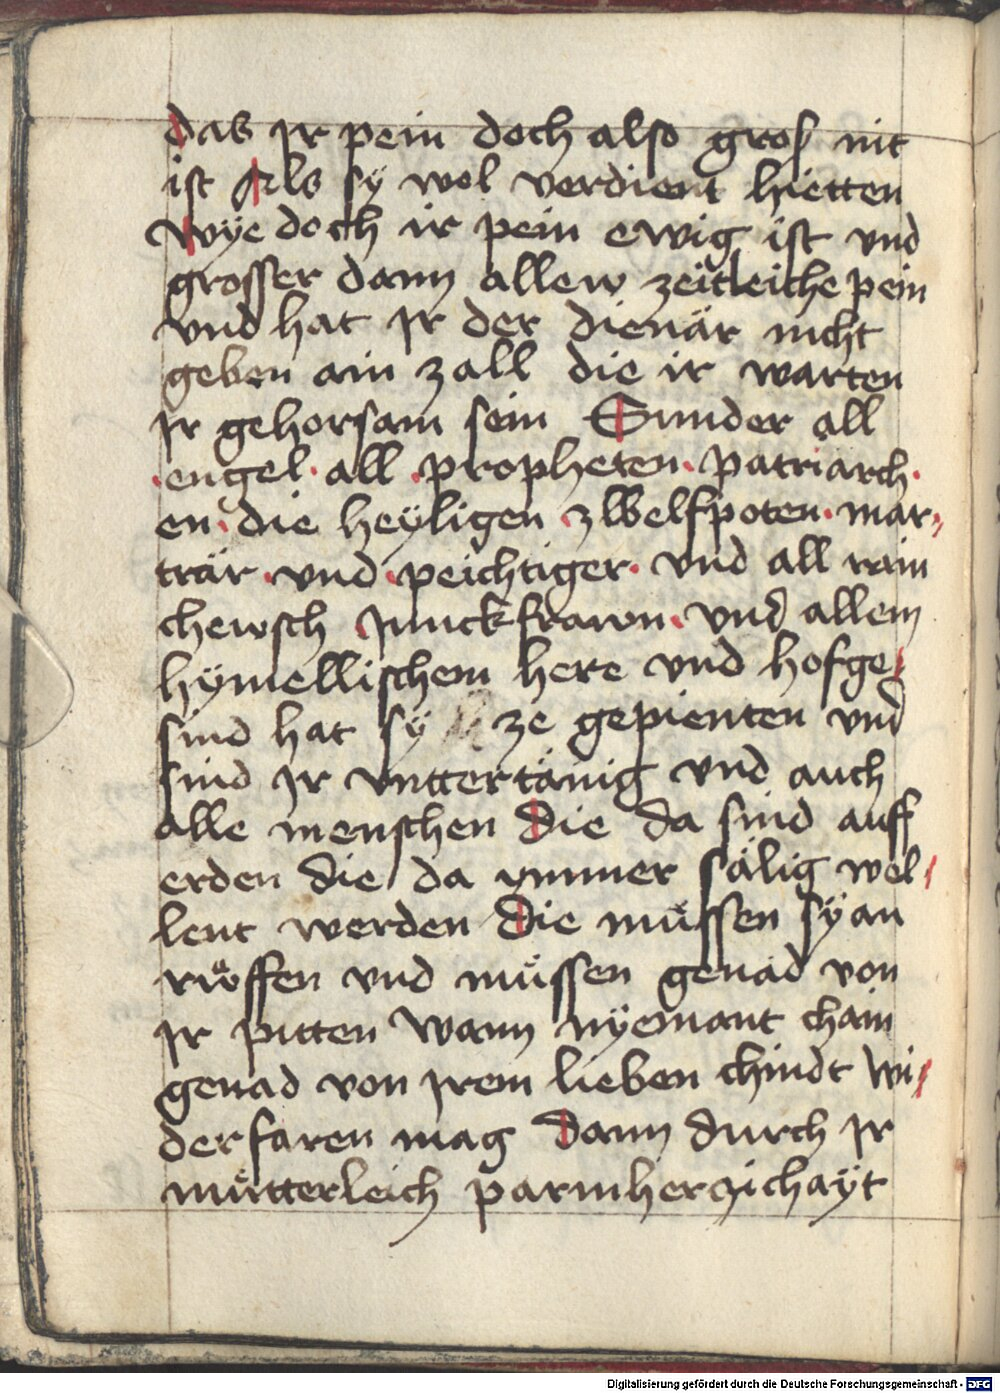 das Ir pein doch also gros nit
ist Als sÿ wol verdient hietten
Wÿe doch ir pein ewig ist vnd
grosser dann allew zeitleiche pein
vnd hat Ir der dienär nicht
geben ain zall die ir warten
Ir gehorsam sein Sunder all
·engel· all ·propheten· patriarch·
en· die heÿligen zwelfpoten· mar⸗
trär· vnd ·peichtiger· vnd all rain
chewsch Junckfrawn· vnd allem
hÿmellischem here vnd hofge⸗
sind hat sÿ ze gepienten vnd
sind Ir vnttertänig vnd auch
alle menschen Die da sind auff
erden die da ymmer sälig wel⸗
lent werden Die müssen sÿ an
rüffen vnd müssen genad von
Ir pitten wann nÿemant chain
genad von Irem lieben chindt wi⸗
derfaren mag Dann durch Ir
mütterleich parmherczichaÿt
Digitalisierung gefördert durch die Deutsche Forschungsgemeinschaft - DFG